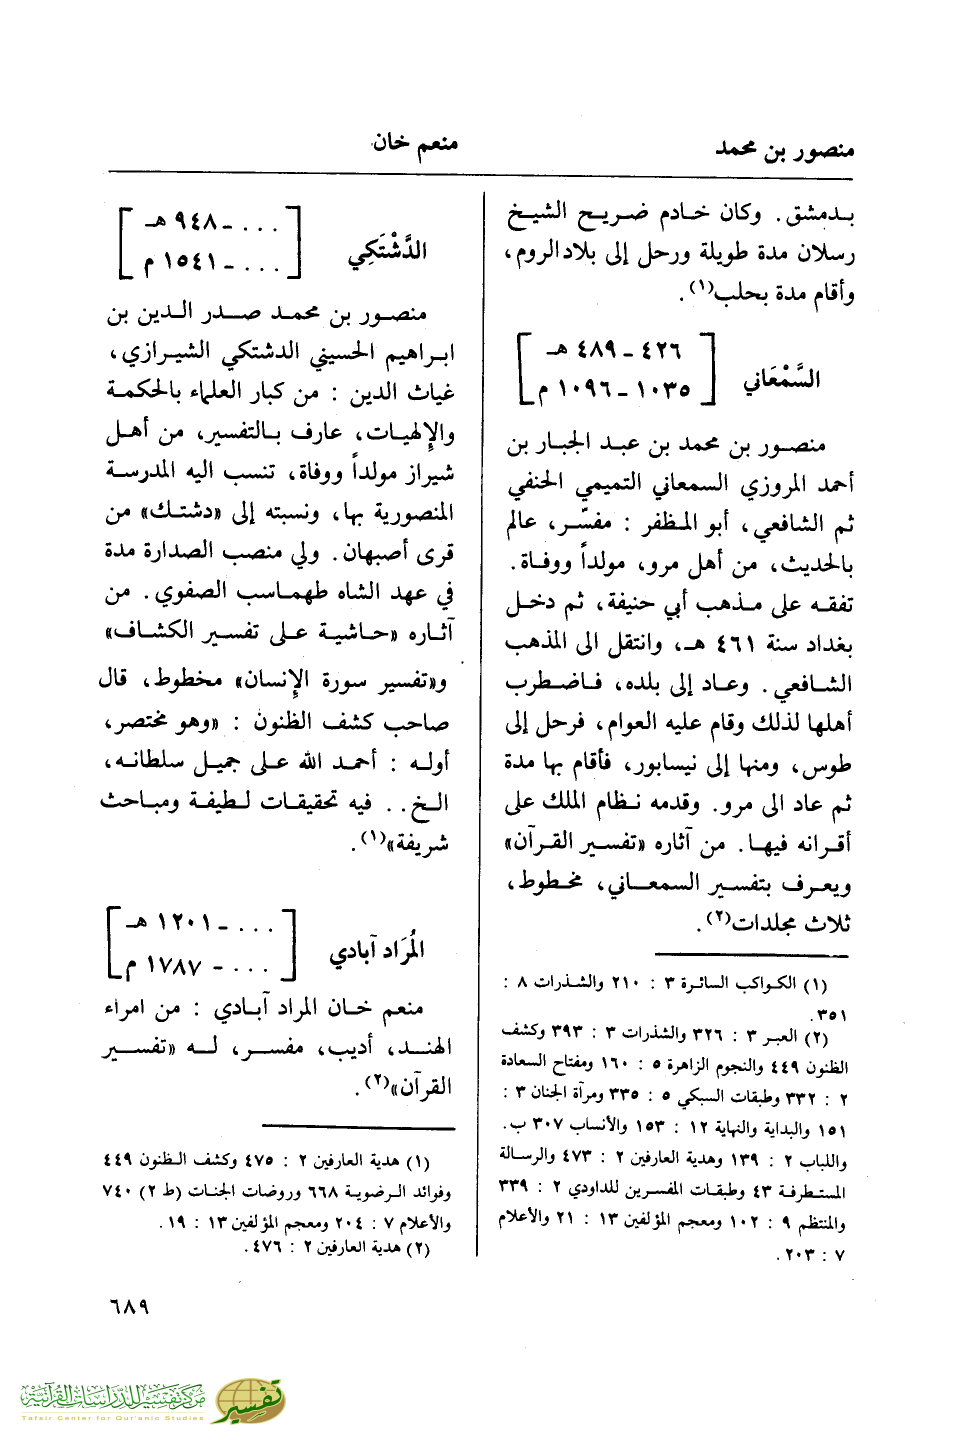 منصور بن محمد
منعم خان
بدمشق. وكان خادم ضريح الشيخ
رسلان مدة طويلة ورحل إلى بلاد الروم،
وأقام مدة بحلب(١).
السَّمْعَاني
[٤٢٦ - ٤٨٩ هـ
١٠٣٥ - ١٠٩٦ م]
منصور بن محمد بن عبد الجبار بن
أحمد المروزي السمعاني التميمي الحنفي
ثم الشافعي، أبو المظفر : مفسّر، عالم
بالحديث، من أهل مرو، مولداً ووفاة.
تفقه على مذهب أبي حنيفة، ثم دخل
بغداد سنة ٤٦١ هـ، وانتقل الى المذهب
الشافعي. وعاد إلى بلده، فاضطرب
أهلها لذلك وقام عليه العوام، فرحل إلى
طوس، ومنها إلى نيسابور، فأقام بها مدة
ثم عاد الى مرو. وقدمه نظام الملك على
أقرانه فيها. من آثاره «تفسير القرآن»
ويعرف بتفسير السمعاني، مخطوط،
ثلاث مجلدات(٢).
(١) الكواكب السائرة ٣ : ٢١٠ والشذرات ٨ :
٣٥١.
(٢) العبر ٣ : ٣٢٦ والشذرات ٣ : ٣٩٣ وكشف
الظنون ٤٤٩ والنجوم الزاهرة ٥ : ١٦٠ ومفتاح السعادة
٢ : ٣٣٢ وطبقات السبكي ٥ : ٣٣٥ ومرآة الجنان ٣ :
١٥١ والبداية والنهاية ١٢ : ١٥٣ والأنساب ٣٠٧ ب.
واللباب ٢ : ١٣٩ وهدية العارفين ٢ : ٤٧٣ والرسالة
المستطرفة ٤٣ وطبقات المفسرين للداودي ٢ : ٣٣٩
والمنتظم ٩ : ١٠٢ ومعجم المؤلفين ١٣ : ٢١ والأعلام
٧ : ٢٠٣.
الدَّشْتَكِي
[... - ٩٤٨ هـ
... - ١٥٤١ م]
منصور بن محمد صدر الدين بن
ابراهيم الحسيني الدشتكي الشيرازي،
غياث الدين : من كبار العلماء بالحكمة
والإلهيات، عارف بالتفسير، من أهل
شيراز مولداً ووفاة، تنسب اليه المدرسة
المنصورية بها، ونسبته إلى «دشتك» من
قرى أصبهان. ولي منصب الصدارة مدة
في عهد الشاه طهماسب الصفوي. من
آثاره «حاشية على تفسير الكشاف»
و«تفسير سورة الإنسان» مخطوط، قال
صاحب كشف الظنون : «وهو مختصر،
أوله : أحمد الله على جميل سلطانه،
الخ.. فيه تحقيقات لطيفة ومباحث
شريفة»(١).
المُرَاد آبادي
[... - ١٢٠١ هـ
... - ١٧٨٧ م]
منعم خان المراد آبادي : من امراء
الهند، أديب، مفسر، له «تفسير
القرآن»(٢).
(١) هدية العارفين ٢ : ٤٧٥ وكشف الظنون ٤٤٩
وفوائد الرضوية ٦٦٨ وروضات الجنات (ط ٢) ٧٤٠
والأعلام ٧ : ٢٠٤ ومعجم المؤلفين ١٣ : ١٩.
(٢) هدية العارفين ٢ : ٤٧٦.
٦٨٩
مركز تفسير للدراسات القرآنية
Tafsir Center for Qur'anic Studies
تفسير